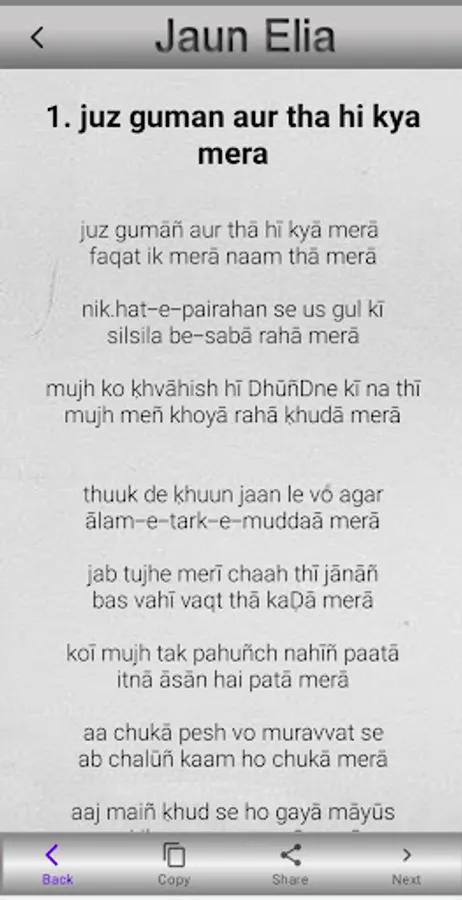 Jaun Elia
1. juz guman aur tha hi kya
mera
juz gumāñ aur thā hī kyā merā
faqat ik merā naam thā merā
nik.hat-e-pairahan se us gul kī
silsila be-sabā rahā merā
mujh ko ḳhvāhish hī DhūñDne kī na thī
mujh meñ khoyā rahā ḳhudā merā
thuuk de ḳhuun jaan le vo agar
ālam-e-tark-e-muddaā merā
jab tujhe merī chaah thī jānāñ
bas vahī vaqt thā kaḌā merā
koī mujh tak pahuñch nahīñ paatā
itnā āsān hai patā merā
aa chukā pesh vo muravvat se
ab chalūñ kaam ho chukā merā
aaj maiñ ḳhud se ho gayā māyūs
Back
Copy
Share
Next